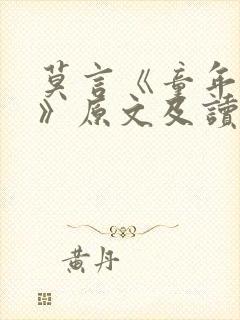 莫言《童年
》原文及讀
黃丹